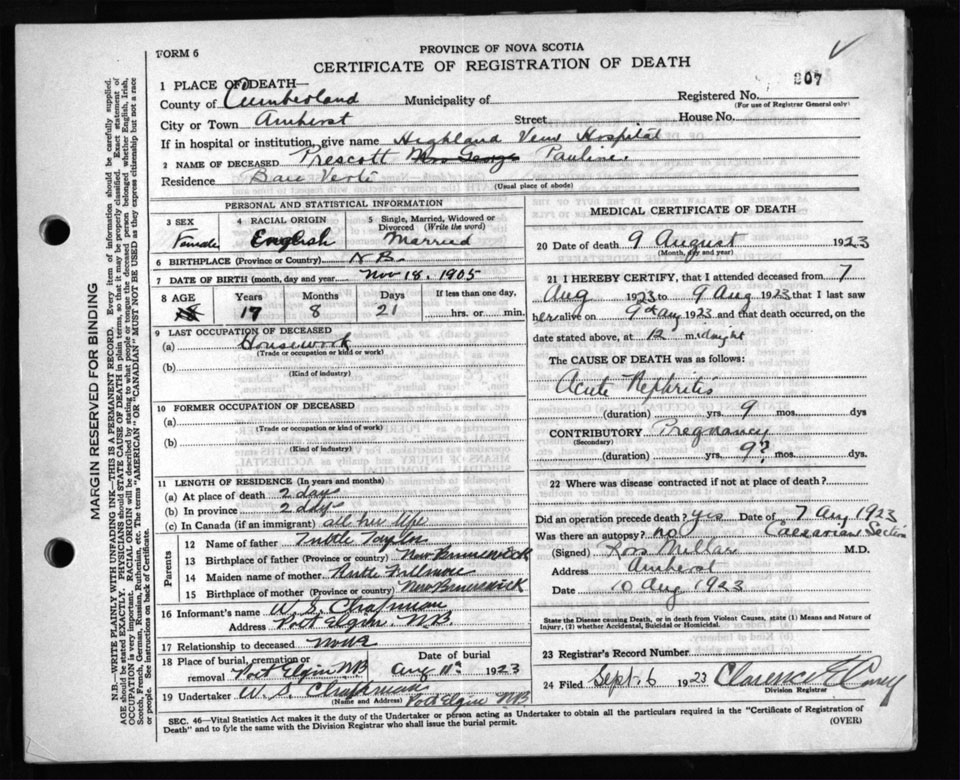 FORM 6
PROVINCE OF NOVA SCOTIA
CERTIFICATE OF REGISTRATION OF DEATH
1 PLACE OF DEATH—
Registered No. 207
(For use of Registrar General only)
County of Cumberland Municipality of
City or Town Amherst Street House No.
If in hospital or institution, give name Highland View Hospital
2 NAME OF DECEASED Prescott Mrs George Pauline.
Residence Baie Verte
(Usual place of abode)
PERSONAL AND STATISTICAL INFORMATION
3 SEX Female
4 RACIAL ORIGIN English
5 Single, Married, Widowed or Divorced (Write the word) Married
6 BIRTHPLACE (Province or Country) N B.
7 DATE OF BIRTH (month, day and year) Nov 18. 1905
8 AGE 18 Years 17 Months 8 Days 21 If less than one day, hrs. or min.
9 LAST OCCUPATION OF DECEASED
(a) Housework
(Trade or occupation or kind or work)
(b)
(Kind of industry)
10 FORMER OCCUPATION OF DECEASED
(a)
(Trade or occupation or kind of work)
(b)
(Kind of industry)
11 LENGTH OF RESIDENCE (In years and months)
(a) At place of death 2 days
(b) In province 2 days
(c) In Canada (if an immigrant) all her life
Parents
12 Name of father Tuttle
13 Birthplace of father (Province or country) New Brunswick
14 Maiden name of mother Fillmore
15 Birthplace of mother (Province or country) New Brunswick
16 Informant's name W. S. Chapman
Address Port Elgin. N.B.
17 Relationship to deceased none
18 Place of burial, cremation or removal Port Elgin NB Date of burial Aug 11th 1923
19 Undertaker W. S. Chapman
(Name and Address) Port Elgin NB
MEDICAL CERTIFICATE OF DEATH
20 Date of death 9 August 1923
(Month, day and year)
21 I HEREBY CERTIFY, that I attended deceased from 7
Aug 1923 to 9 Aug 1923 that I last saw
her alive on 9th Aug 1923 and that death occurred, on the
date stated above, at 12 midnight
The CAUSE OF DEATH was as follows:
Acute Nephritis
(duration) yrs. 9 mos. dys
CONTRIBUTORY Pregnancy
(Secondary)
(duration) yrs. 9? mos. dys.
22 Where was disease contracted if not at place of death?
Did an operation precede death? yes Date of 7 Aug 1923
Was there an autopsy? no Caesarian Section
(Signed) Ross Millar M.D.
Address Amherst
Date 10 Aug 1923
State the Disease causing Death, or in death from Violent Causes, state (1) Means and Nature of
Injury, (2) whether Accidental, Suicidal or Homicidal.
23 Registrar's Record Number
24 Filed Sept. 6 1923 Clarence
Division Registrar
SEC. 46—Vital Statistics Act makes it the duty of the Undertaker or person acting as Undertaker to obtain all the particulars required in the "Certificate of Registration of
Death" and to fyle the same with the Division Registrar who shall issue the burial permit.
(OVER)
MARGIN RESERVED FOR BINDING
N.B.—WRITE PLAINLY WITH UNFADING INK—THIS IS A PERMANENT RECORD. Every item of information should be carefully supplied.
AGE should be stated EXACTLY. PHYSICIANS should STATE CAUSE OF DEATH in plain terms, so that it may be properly classified. Exact statement of
OCCUPATION is very important. RACIAL ORIGIN will be described by stating to what people or tongue the deceased person belonged whether English, Irish,
Scotch, French, German, Russian, Ruthenian, etc. The terms "AMERICAN" or "CANADIAN" MUST NOT BE USED as they express citizenship but not a race
or people. See instructions on back of Certificate.